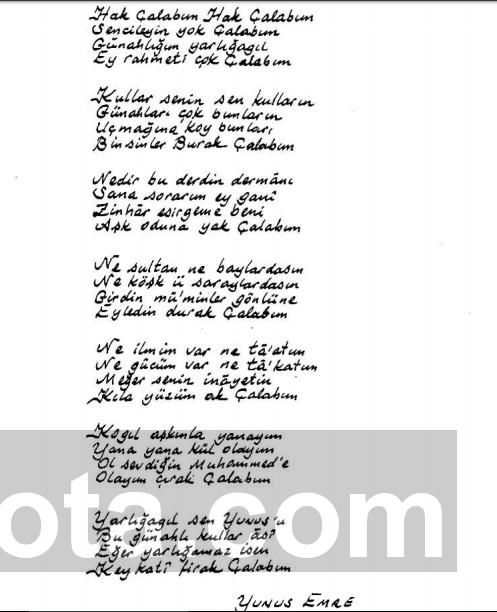 Hak Çalabum Hak Çalabum
Sencileyin yok Çalabum
Günahlığum yarlığagıl
Ey rahmeti çok Çalabum
Kullar senin sen kulların
Günahları çok bunların
Uçmağına koy bunları
Binsinler Burak Çalabum
Nedir bu derdin dermânı
Sana sorarım ey ganî
Zinhâr esirgeme beni
Aşk oduna yak Çalabum
Ne sultan ne baylardasın
Ne köşk ü saraylardasın
Girdin mü'minler gönlüne
Eyledin durak Çalabum
Ne ilmim var ne tâ'atum
Ne gücüm var ne tâ'katum
Meğer senin inâyetin
Kıla yüzüm ak Çalabum
Kogıl aşkınla yanayım
Yana yana kül olayım
Ol sevdiğin Muhammed'e
Olayım çırak Çalabum
Yarlığagıl sen Yunus'u
Bu günahlı kullar âsî
Eğer yarlığamaz isen
Key katî firak Çalabum
YUNUS EMRE
ota.com